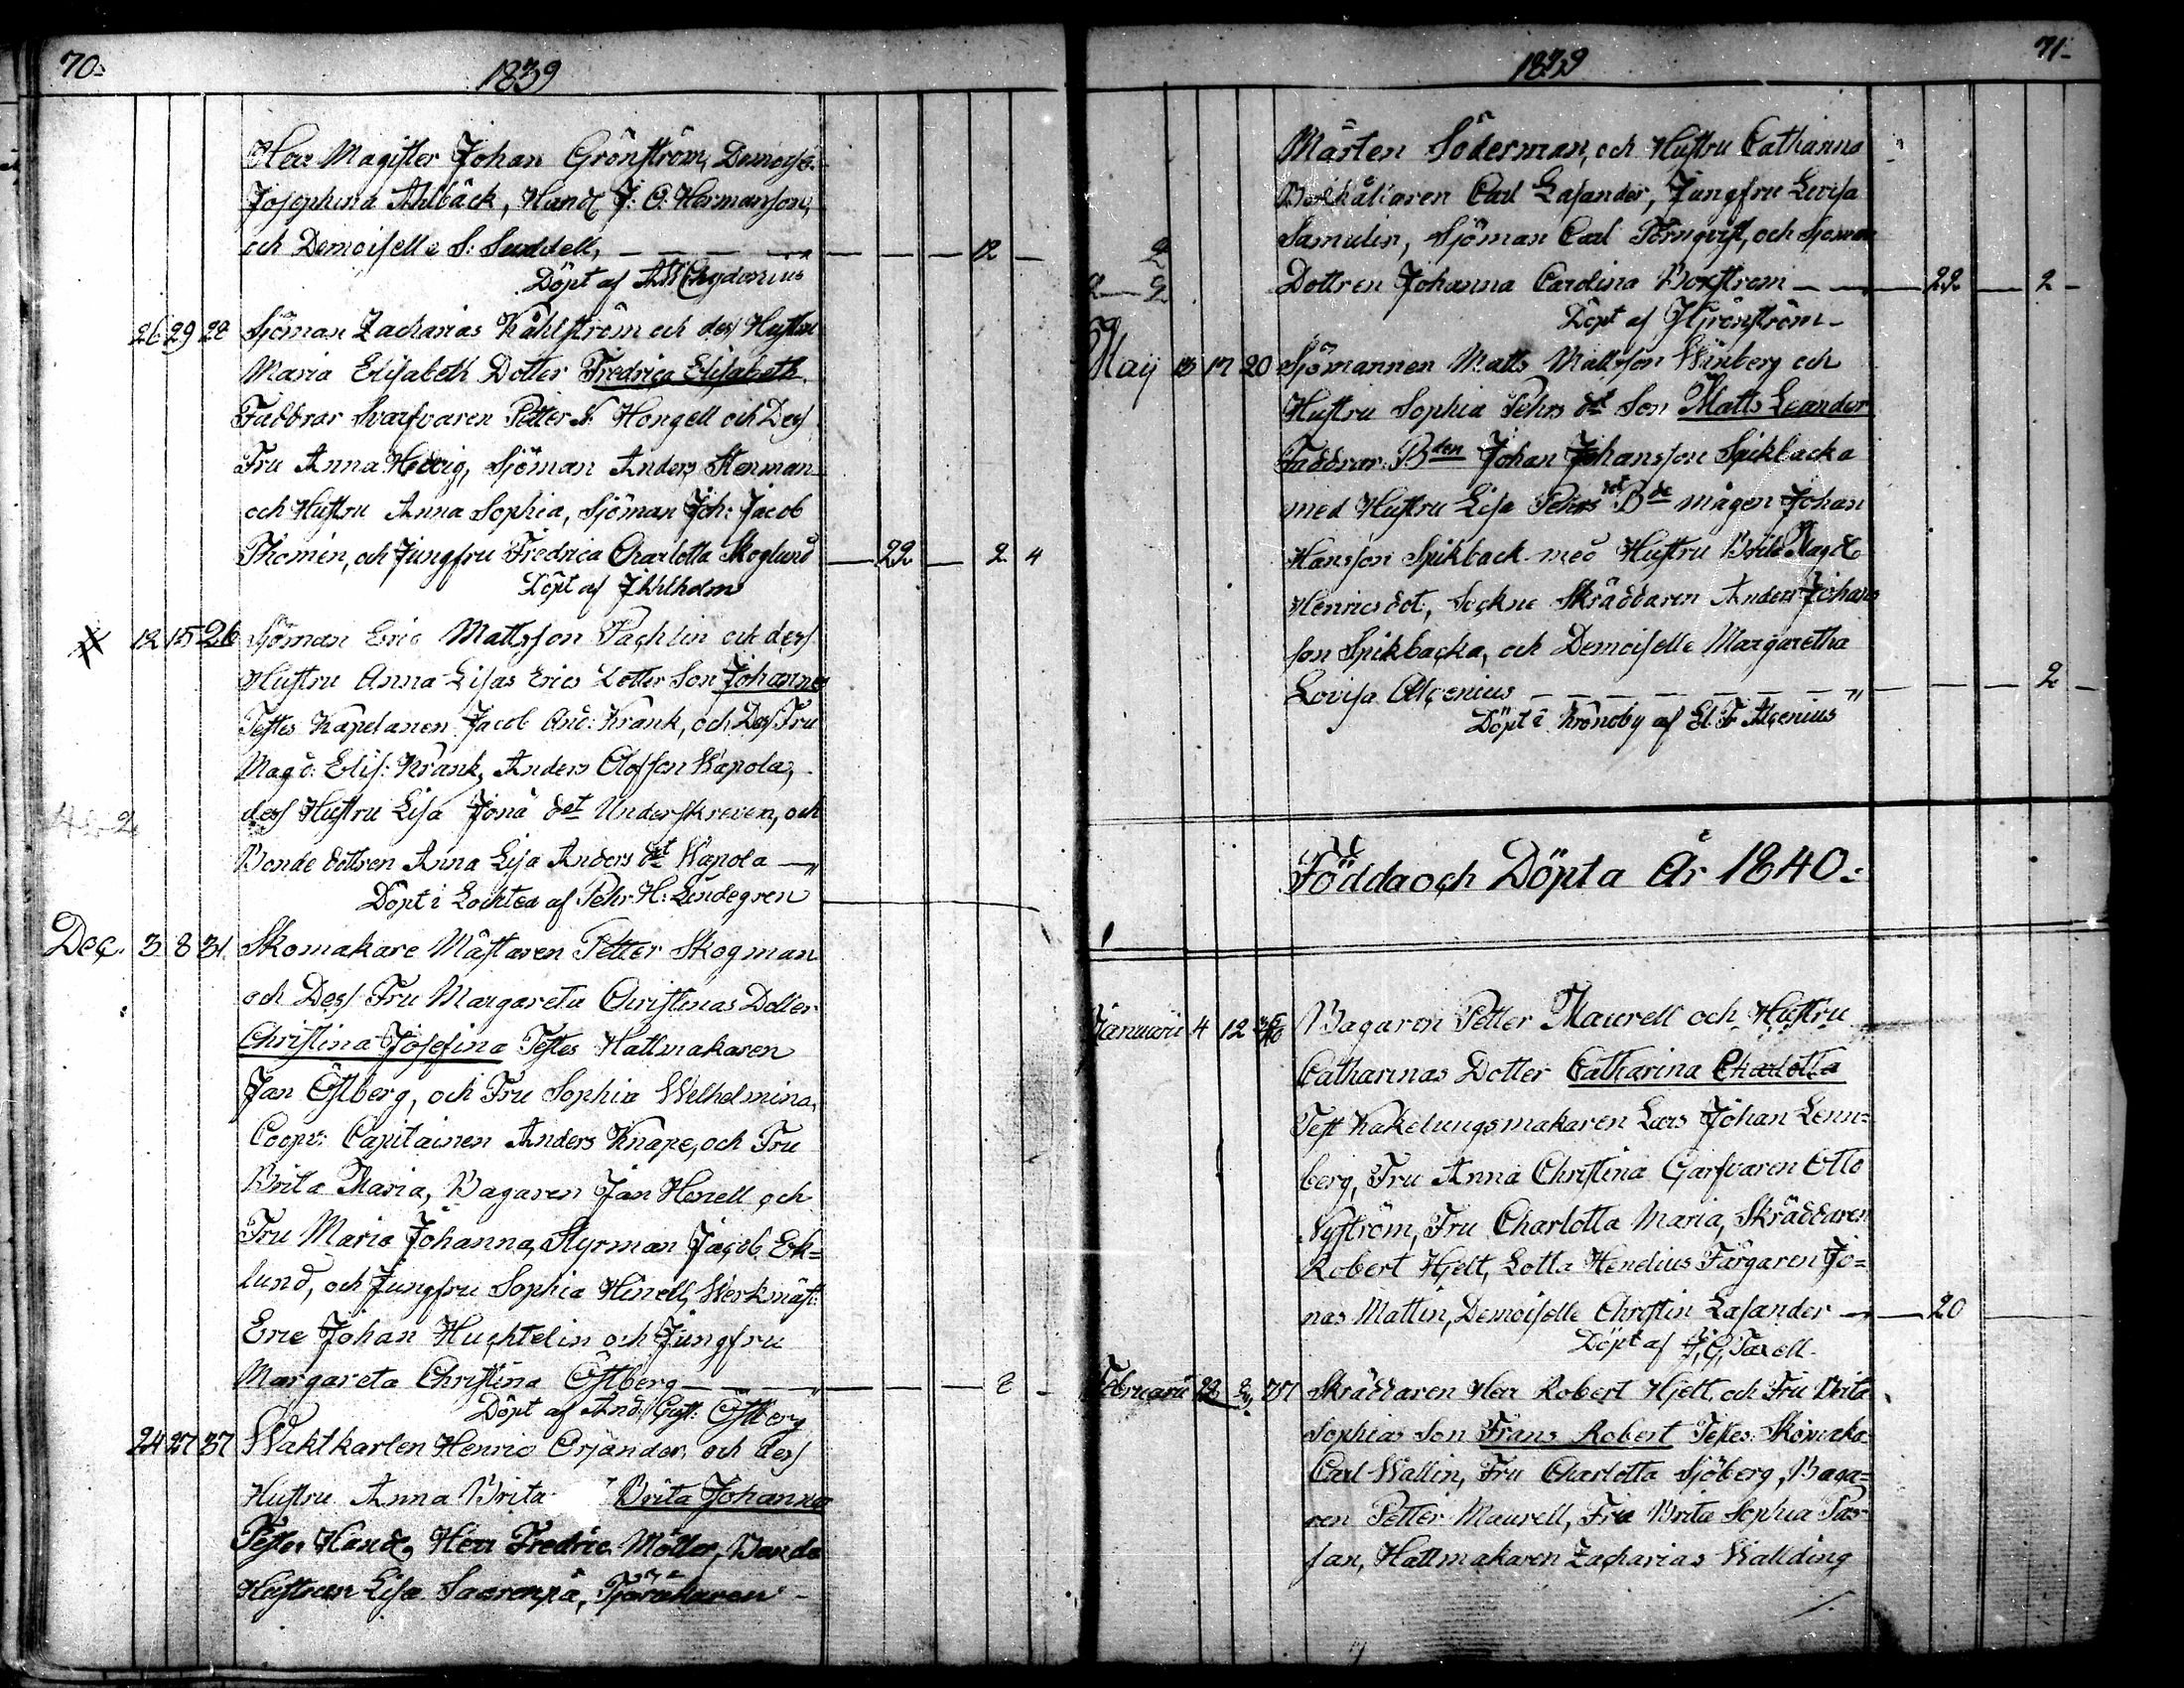 70.
1839
Herr Magister Johan Grönström, Demoise.
Josephina Ahlbäck, Handl J: C. Hermanson,
och Demoiselle S: Sundell, 12
Döpt af AWChydenius
26 29 28 Sjöman Zacharias Kåhlström och dess Hustru
Maria Elisabeth Dotter Fredrica Elisabeth.
Faddrar Svarfvaren Petter N: Hongell och Dess
Fru Anna Hedvig, Sjöman Anders Stenman
och Hustru Anna Sophia, Sjöman Joh: Jacob
Thomén, och Jungfru Fredrica Charlotta Skoglund 22 2 4
Döpt af
12 15 26 Sjöman Eric Mattsson Pachlin och dess
Hustru Anna Lisas Erics Dotter Son Johannes
Testes Kapelanen Jacob And: Krank, och Dess Fru
Magd: Elis: Krank, Anders Olofson Wapola,
dess Hustru Lisa Jona dot Underskreven, och
Bonde dottren Anna Lisa Anders dot Wapola
Döpt i Lochteå af Pehr H: Lindegren
Dec. 3 8 31. Skomakare Mästaren Petter Skogman
och Dess Fru Margareta Christinas Dotter
Christina Josefina Testes Hattmakaren
Jan Östberg, och Fru Sophia Welhelmina,
Coopv: Capitainen Anders Knape, och Fru
Brita Maria, Bagaren Jan Henell och
Fru Maria Johanna, Styrman Jacob Ek=
lund, och Jungfru Sophia Hinell, Werkmäst:
Eric Johan Huchtelin och Jungfru
Margareta Christina Östberg 2
Döpt af And: Gust: Östberg
24 27 37 Waktkarlen Henric Orjander, och dess
Hustru Anna Brita Brita Johanna
Testes Handl Herr Fredric Möller, Bonde
Hustrun Lisa Saarenpä,
71
1839
Mårten Söderman, och Hustru Catharina
Bokhållaren Carl Lasander, Jungfru Lovisa
Samulin, Sjöman Carl Törnqvist, och Sjöman
Dottren Johanna Carolina Boxström 22 2
Döpt af JGrönström
Maij 13 17 20 Sjömannen Matts Mattson Winberg och
Hustru Sophia Pehrs dot Son Matts Leander
Faddrar: Bden Johan Johansson Spikbacka
med Hustru Lisa Pehrs dot Bde mågen Johan
Hansson Spikback med Hustru Brita Magd
Henricsdot, Sockne Skräddaren Anders Johans
son Spikbacka, och Demoiselle Margaretha
Lovisa Alcenius 2
Döpt i Kronoby af El. Fr Alcenius
Födda och Döpta År 1840.
Januarii 4 12 Bagaren Petter Maurell och Hustru
Catharinas Dotter Catharina Charlotta
Test Kakelungsmakaren Lars Johan Lenn=
berg, Fru Anna Christina Garfvaren Otto
Nyström, Fru Charlotta Maria, Skräddaren
Robert Hjelt, Lotta Henelius Färgaren Jo=
nas Mattin, Demoiselle Christin Lasander 20
Döpt af J, G, Taxell
Februarii 22 37 Skräddaren Herr Robert Hjelt, och Fru Brita
Sophias Son Frans Robert Testes: Skomaka
Carl Wallin, Fru Charlotta Sjöberg, Baga=
ren Petter Maurell, Fru Brita Sophia Pas=
san, Hattmakaren Zacharias Wallding